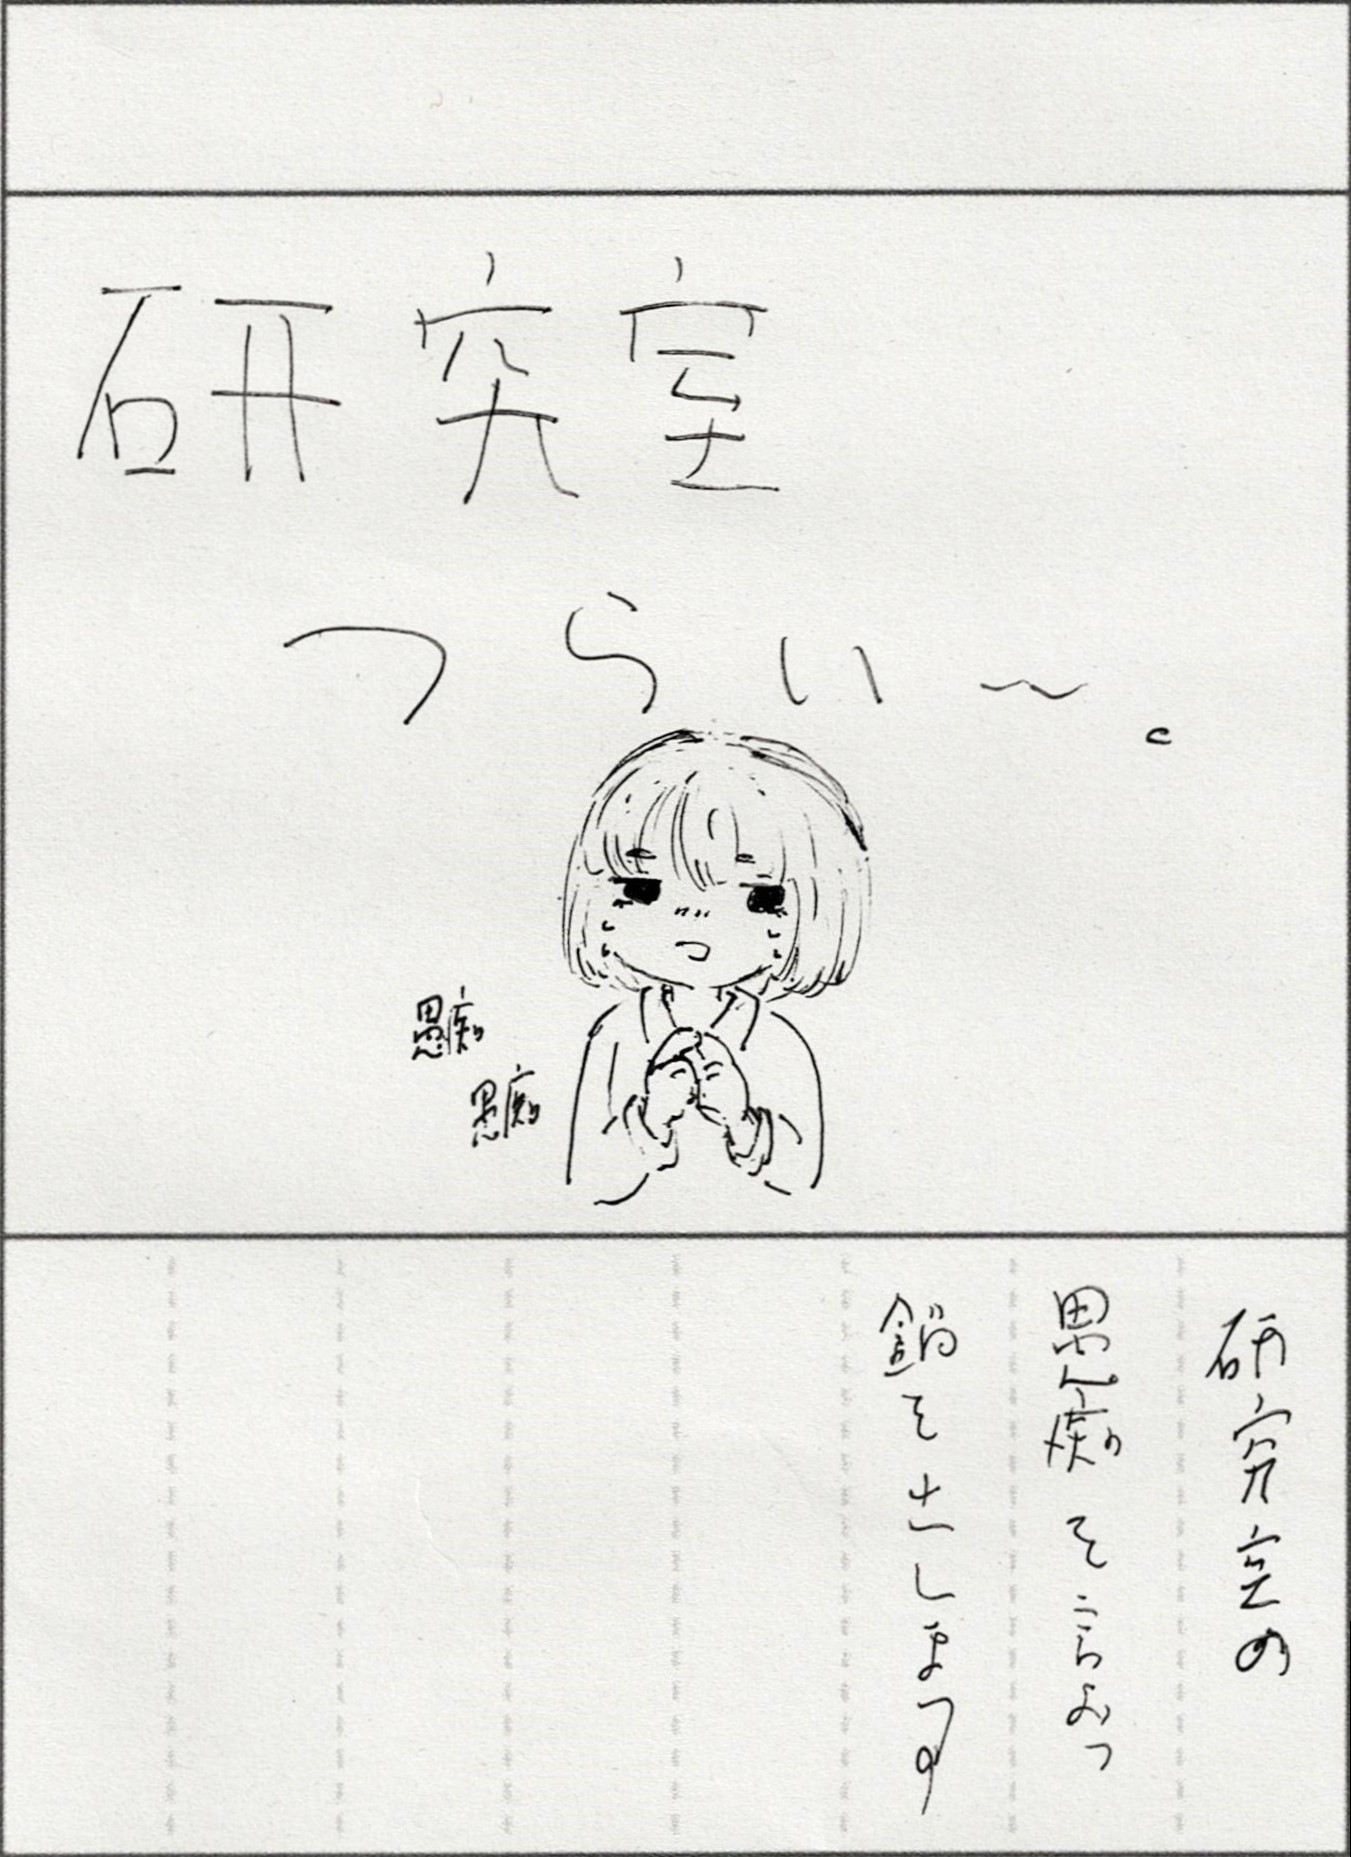 研究室
つらい〜。
愚痴
愚痴
研究室の
愚痴を
鍋をさします